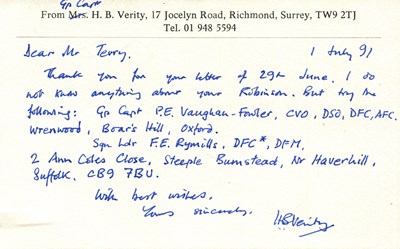 Gp Capt
From Mrs. H. B. Verity, 17 Jocelyn Road, Richmond, Surrey, TW9 2TJ
Tel. 01 948 5594
Dear Mr Terry, 1 July 91
Thank you for your letter of 29th June. I do
not know anything about your Robinson. But try the
following: Gp Capt P.E. Vaughan-Fowler, CVO, DSO, DFC, AFC.
Wrenwood, Boar's Hill, Oxford.
Sqn Ldr F.E. Rymills, DFC*, DFM.
2 Ann Coles Close, Steeple Bumstead, Nr Haverhill,
Suffolk. CB9 7BU.
With best wishes,
Yours sincerely,
HBVerity